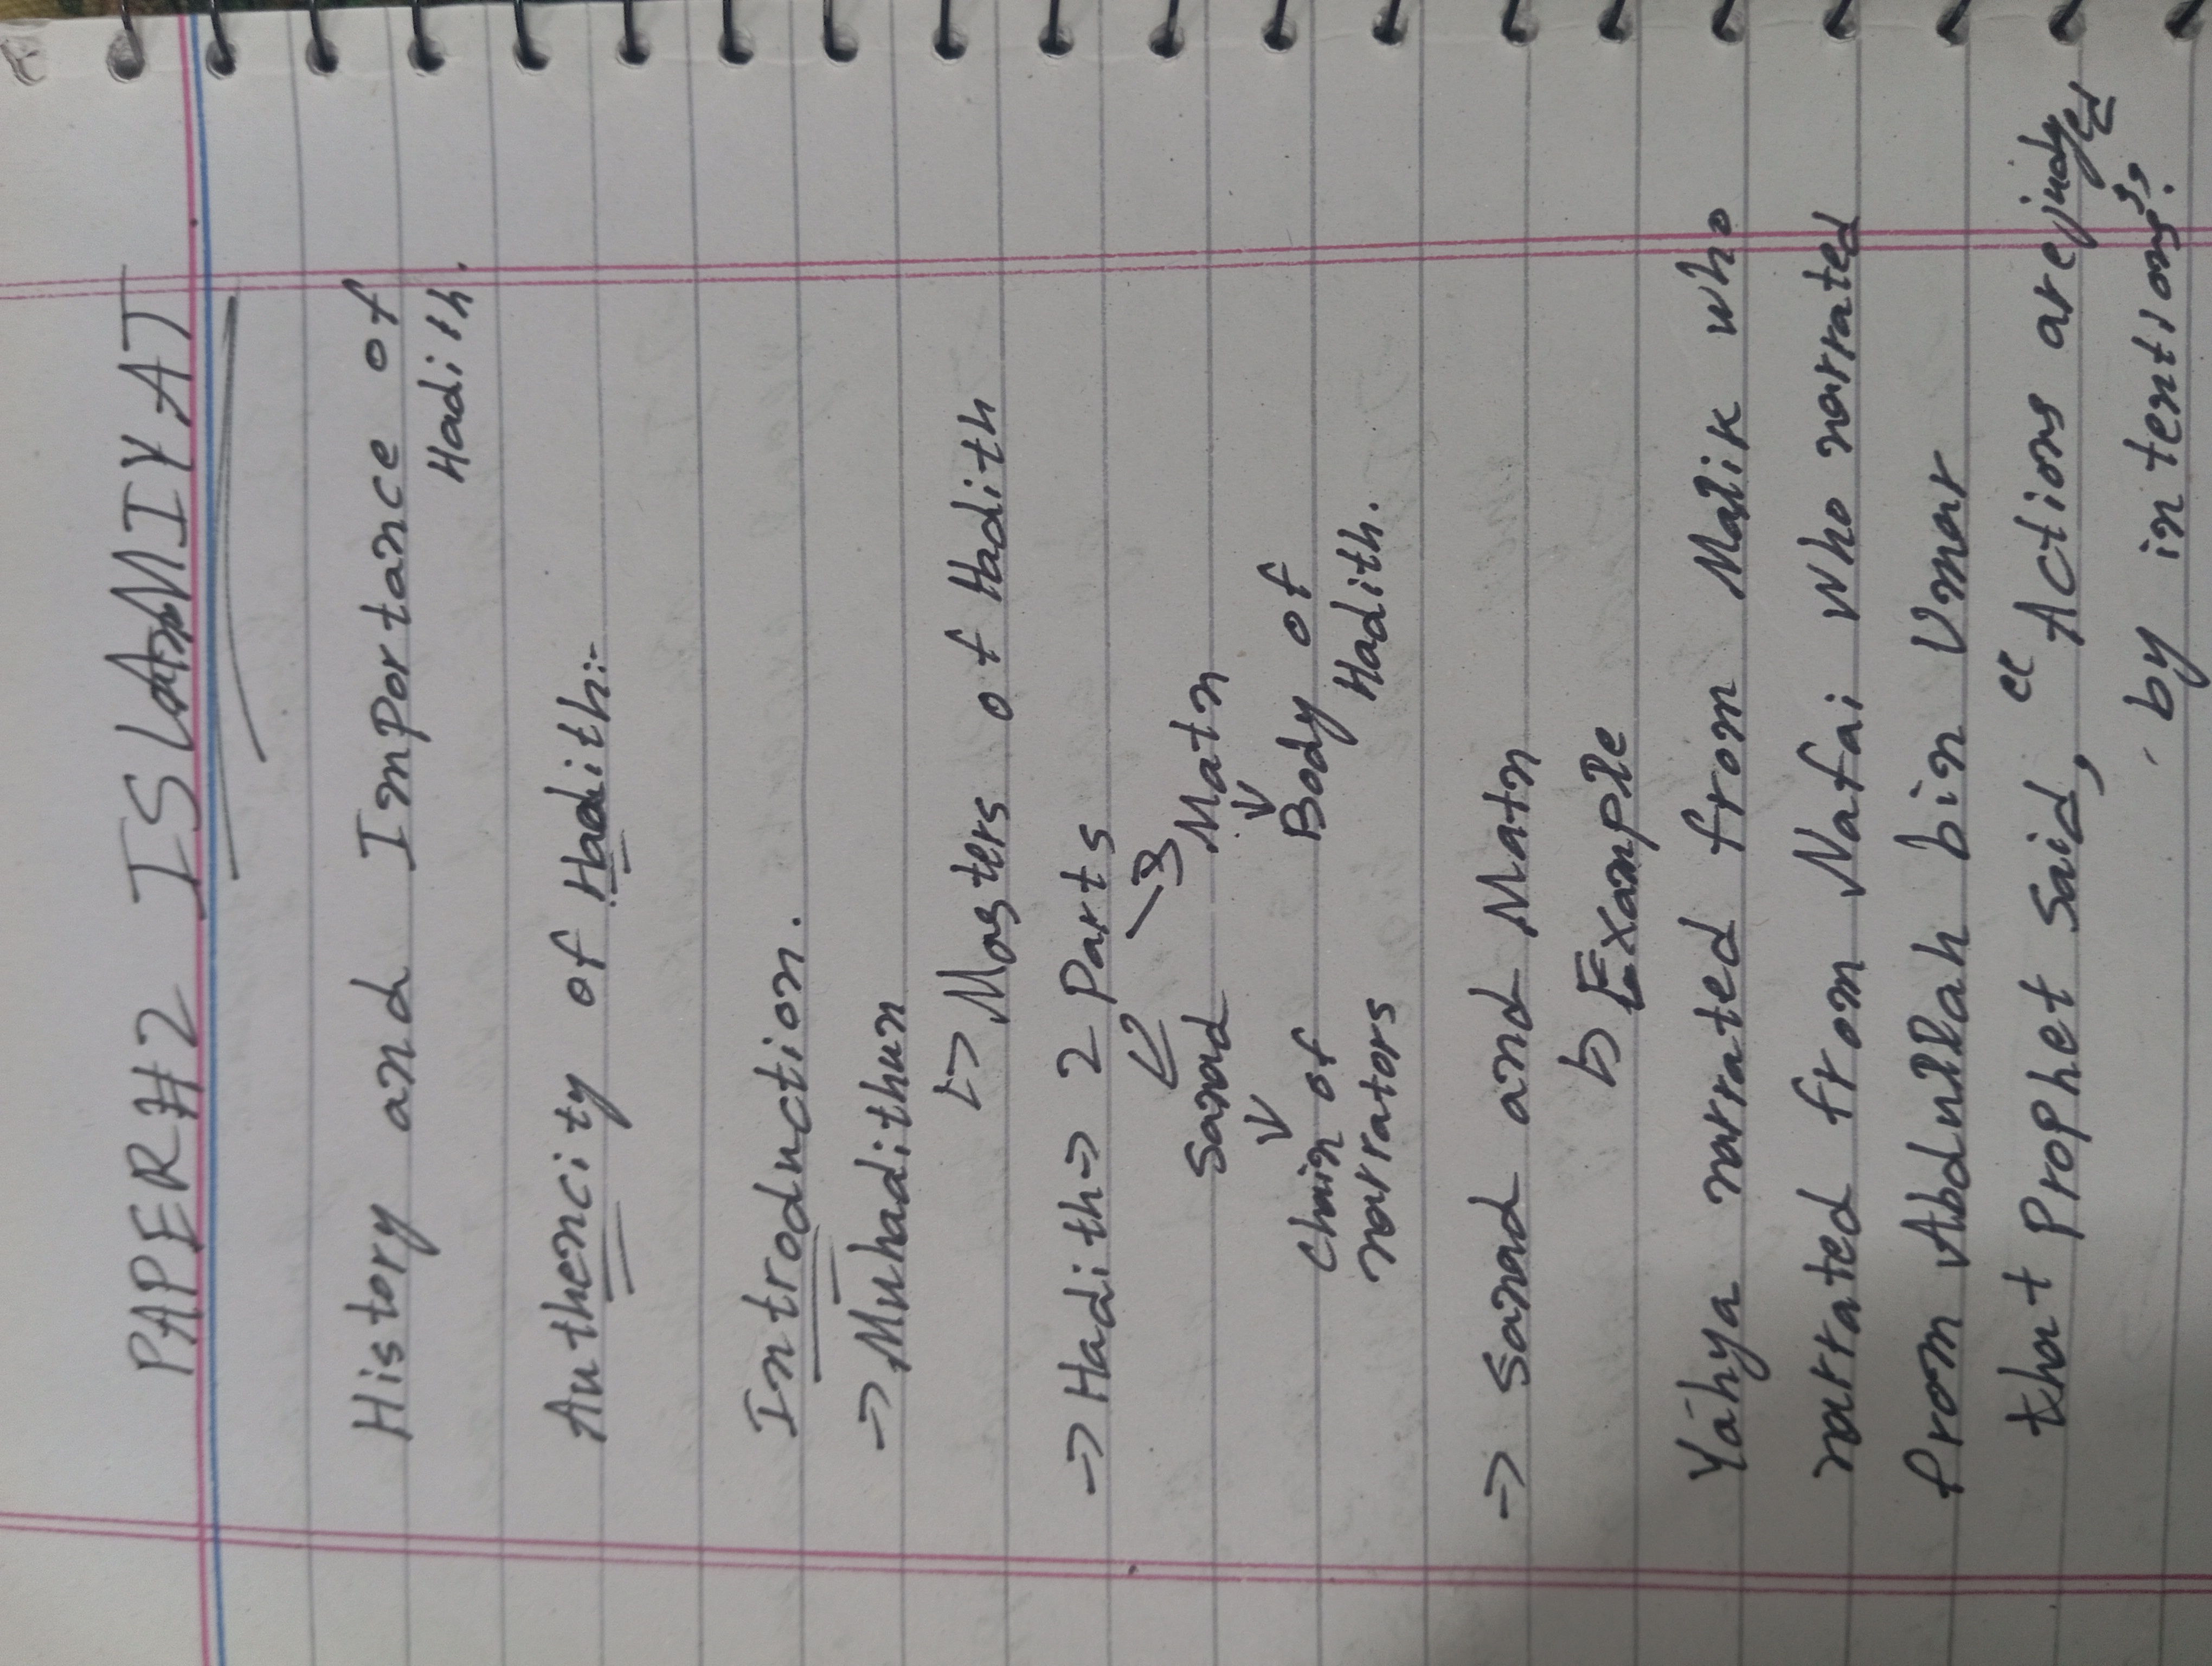 PAPER#2 ISLAMIYAT
History and Importance of
Hadith.
Authencity of Hadith:-
Introduction.
→ Muhadithun
↳ Masters of Hadith
→ Hadith → 2 Parts
Sanad Matn
Chain of Body of
narrators Hadith.
→ Sanad and Matn
↳ Example
Yāhya narrated from Malik who
narrated from Nafai who narrated
from Abdullah bin Umar
that Prophet said, "Actions are judged
by intentions".